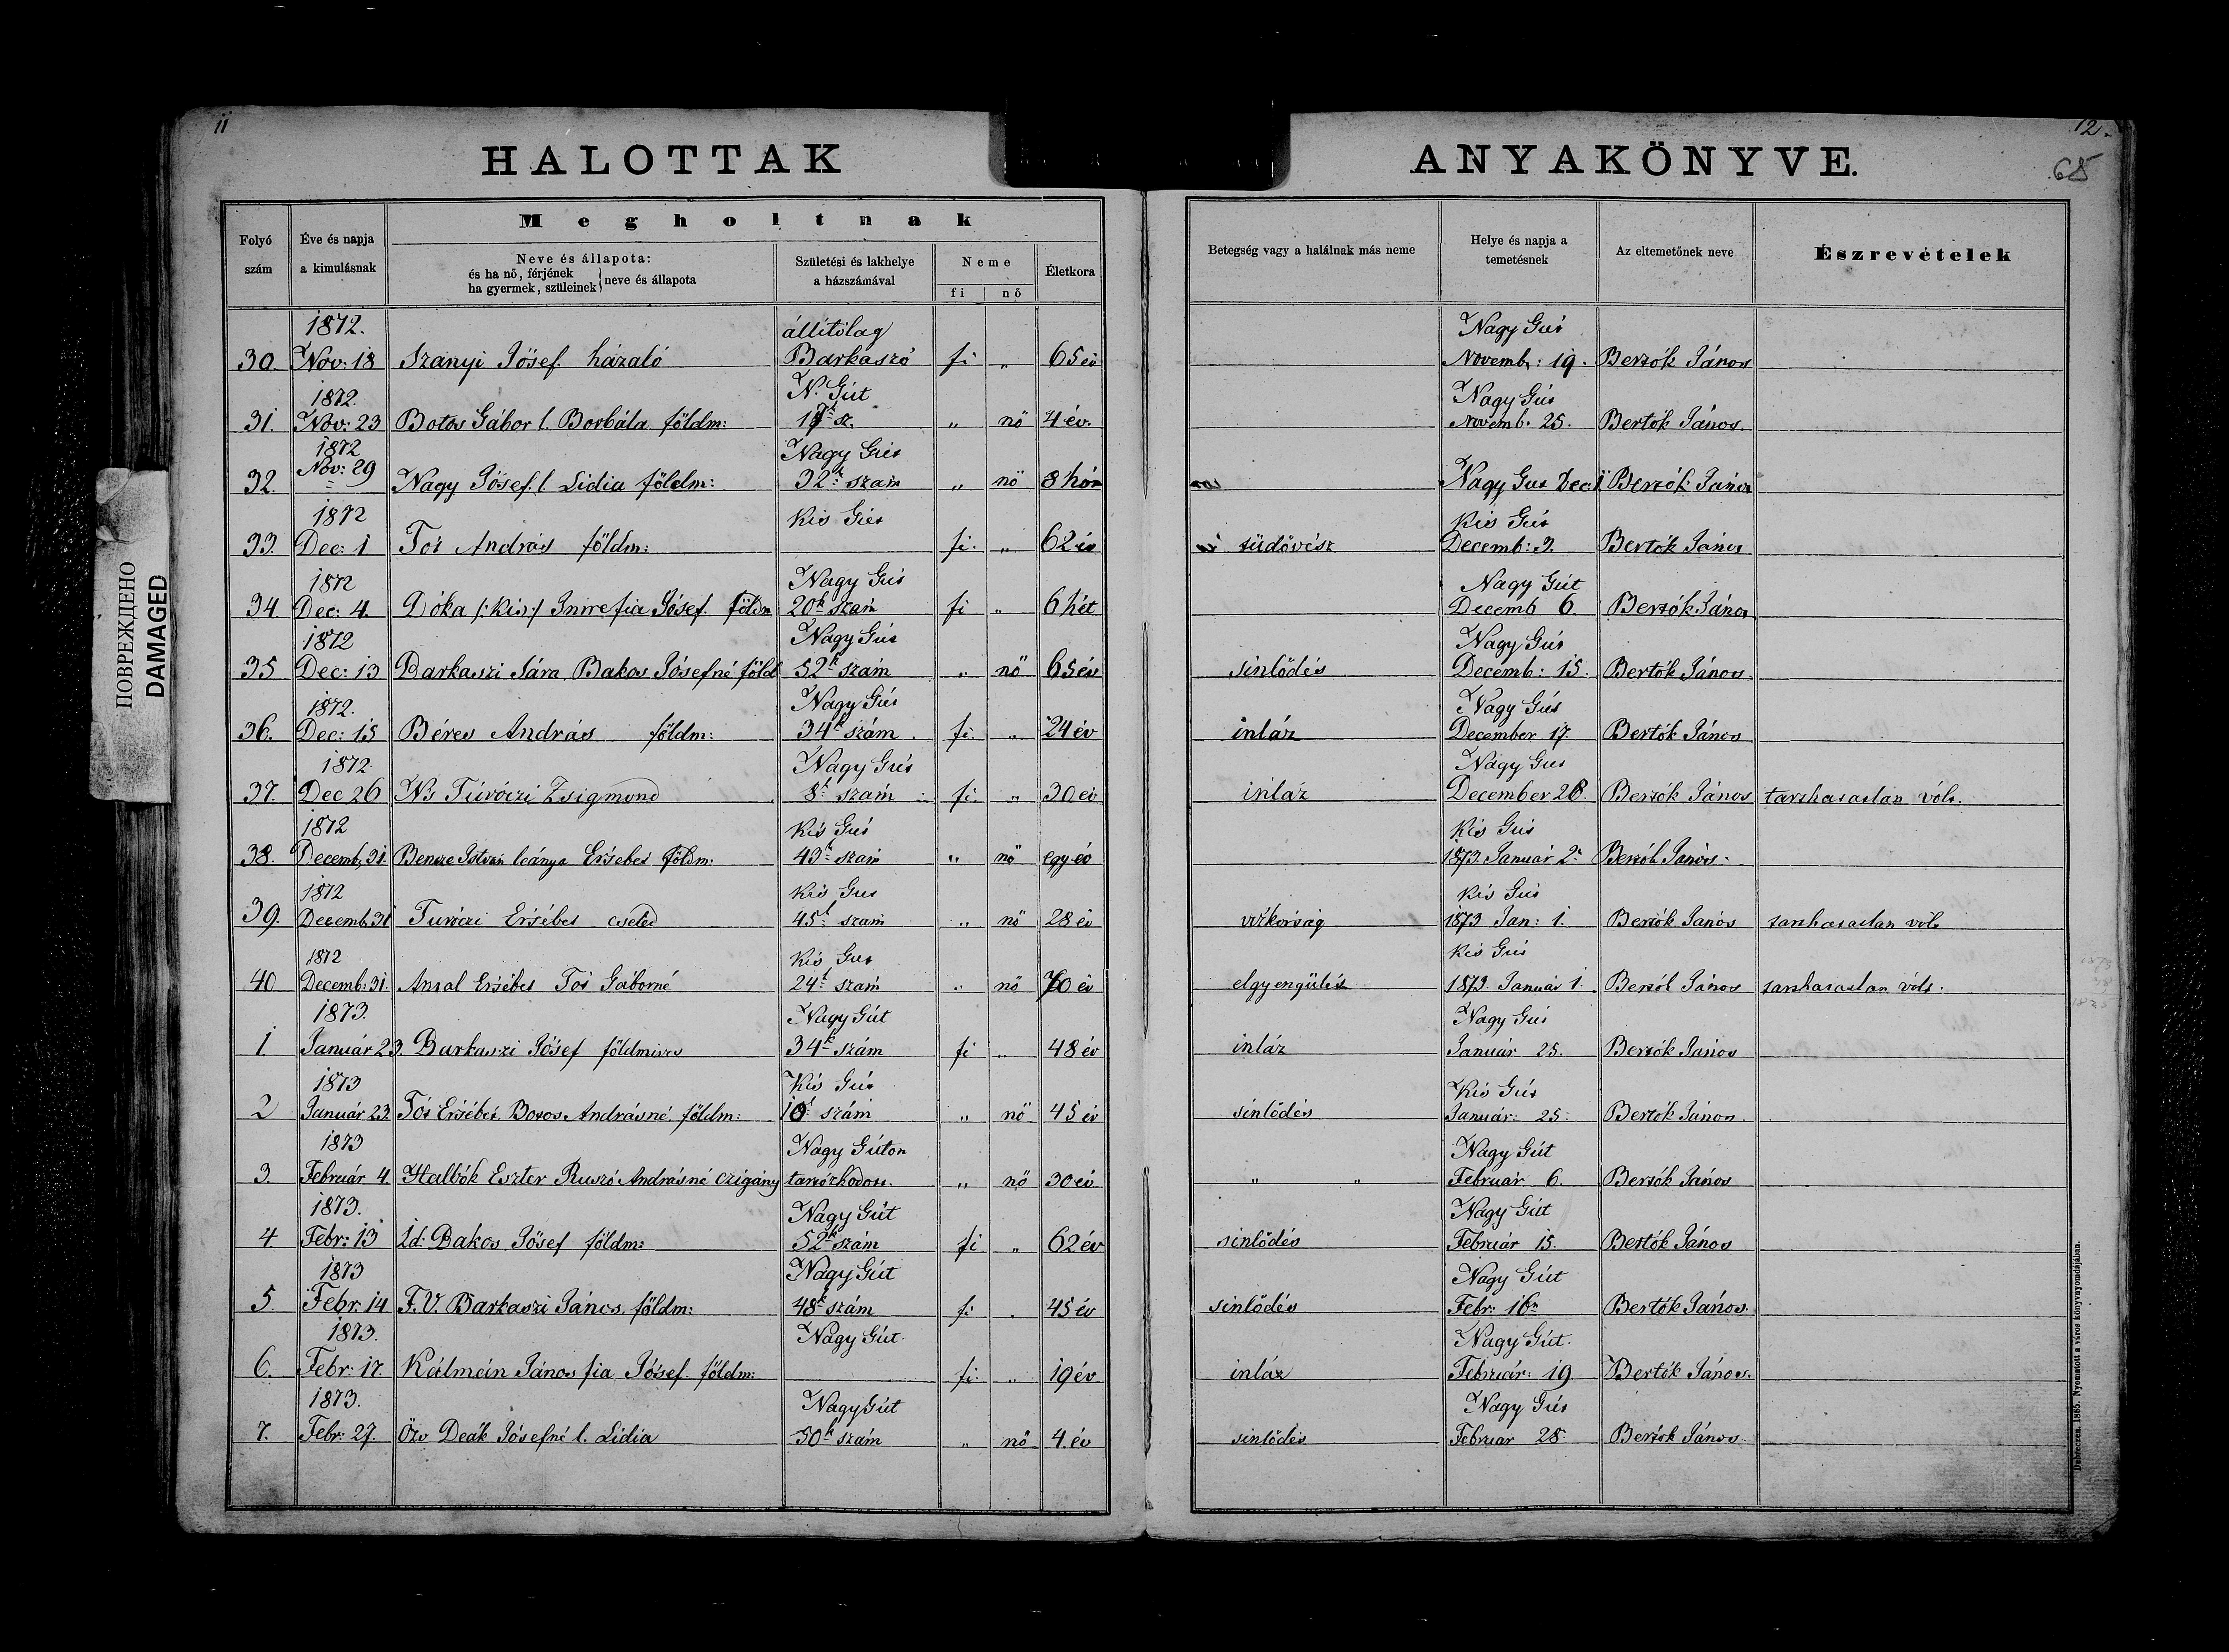 11
12.
65
HALOTTAK ANYAKÖNYVE.
ПОВРЕЖДЕНО
DAMAGED
Megholtnak
Folyó szám
Éve és napja a kimulásnak
Neve és állapota:
és ha nő, férjének
ha gyermek, szüleinek } neve és állapota
Születési és lakhelye a házszámával
Neme
fi nő
Életkora
Betegség vagy a halálnak más neme
Helye és napja a temetésnek
Az eltemetőnek neve
Észrevételek
1872. állitólag Nagy Gút
30. Nov: 18 Szanyi Jósef házaló Barkaszó fi „ 65 év Novemb: 19. Bertók János
1872. N. Gút Nagy Gút
31. Nov: 23 Botos Gábor l. Borbála földm: sz. „ nö 4 év. Novemb. 25. Bertók János.
1872 Nagy Gút
32. Nov: 29 Nagy Jósef l. Lidia földm: 32k szám „ nö 8 hón Nagy Gut Dec: 1 Bertók János
1872 Kis Gút Kis Gút
33. Dec: 1 Tót András földm: fi. „ 62 év tüdővész Decemb: 3. Bertók János
1872 Nagy Gút Nagy Gút
34. Dec: 4. Dóka /:kis:/ Imre fia Jósef földm 20k szám fi „ 6 hét Decemb 6 Bertók János
1872 Nagy Gút Nagy Gút
35 Dec: 13 Barkaszi Sára Bakos Jósefné föld 52k szám „ nö 65 év sinlődés Decemb: 15. Bertók János
1872. Nagy Gút Nagy Gút
36. Dec: 15 Béres András földm: 34k szám. fi. „ 24 év inláz December 17. Bertók János
1872 Nagy Gút Nagy Gut
37. Dec 26 Ns Túróczi Zsigmond 8k szám fi. „ 30 év inláz December 28. Bertók János tarthatatlan vólt.
1872 Kis Gút Kis Gút
38. Decemb, 31. Bencze István leánya Ersébet földm: 43k szám „ nö egy év 1873. Január 2. Bertók János.
1872 Kis Gut Kis Gút
39. Decemb. 31 Turóczi Ersébet cseléd 45k szám „ nö 28 év vízkórság 1873 Jan: 1. Bertók János tarthatatlan vólt
1872 Kis Gut Kis Gút
40 Decemb: 31. Antal Ersébet Tót Gáborné 24k szám „ nö 70 év elgyengülés 1873. Január 1. Bertók János tarthatatlan vólt.
1873. Nagy Gút Nagy Gút
1. Január 23. Barkaszi Jósef földmives 34k szám fi „ 48 év inláz Január 25. Bertók János
1873 Kis Gút Kis Gút
2 Január 23. Tót Ersébet Botos Andrásné földm: 10k szám „ nö 45 év sinlődés Január: 25. Bertók János
1873 Nagy Gúton Nagy Gút
3. Február 4. Eszter Ruszó Andrásné czigány tartózkodott. „ nö 30 év „ „ Február 6. Bertók János
1873. Nagy Gút Nagy Gút
4. Febr: 13 Id: Bakos Jósef földm: 52k szám fi „ 62 év sinlődés Február 15. Bertók János
1873 Nagy Gút Nagy Gút
5. Febr. 14 F. V. Barkaszi János földm: 48k szám fi . 45 év sinlődés Febr: 16n Bertók János.
1873. Nagy Gút. Nagy Gút.
6. Febr: 17. Kálmán János fia Jósef földm: fi. „ 19 év inláz Február: 19 Bertók János.
1873. Nagy Gút Nagy Gút
7. Febr: 27. Özv Deák Jósefné l. Lidia 50k szám „ nö 4 év sinlődés Február 28. Bertók János
Debreczen. 1865. Nyomatott a város könyvnyomdájában.